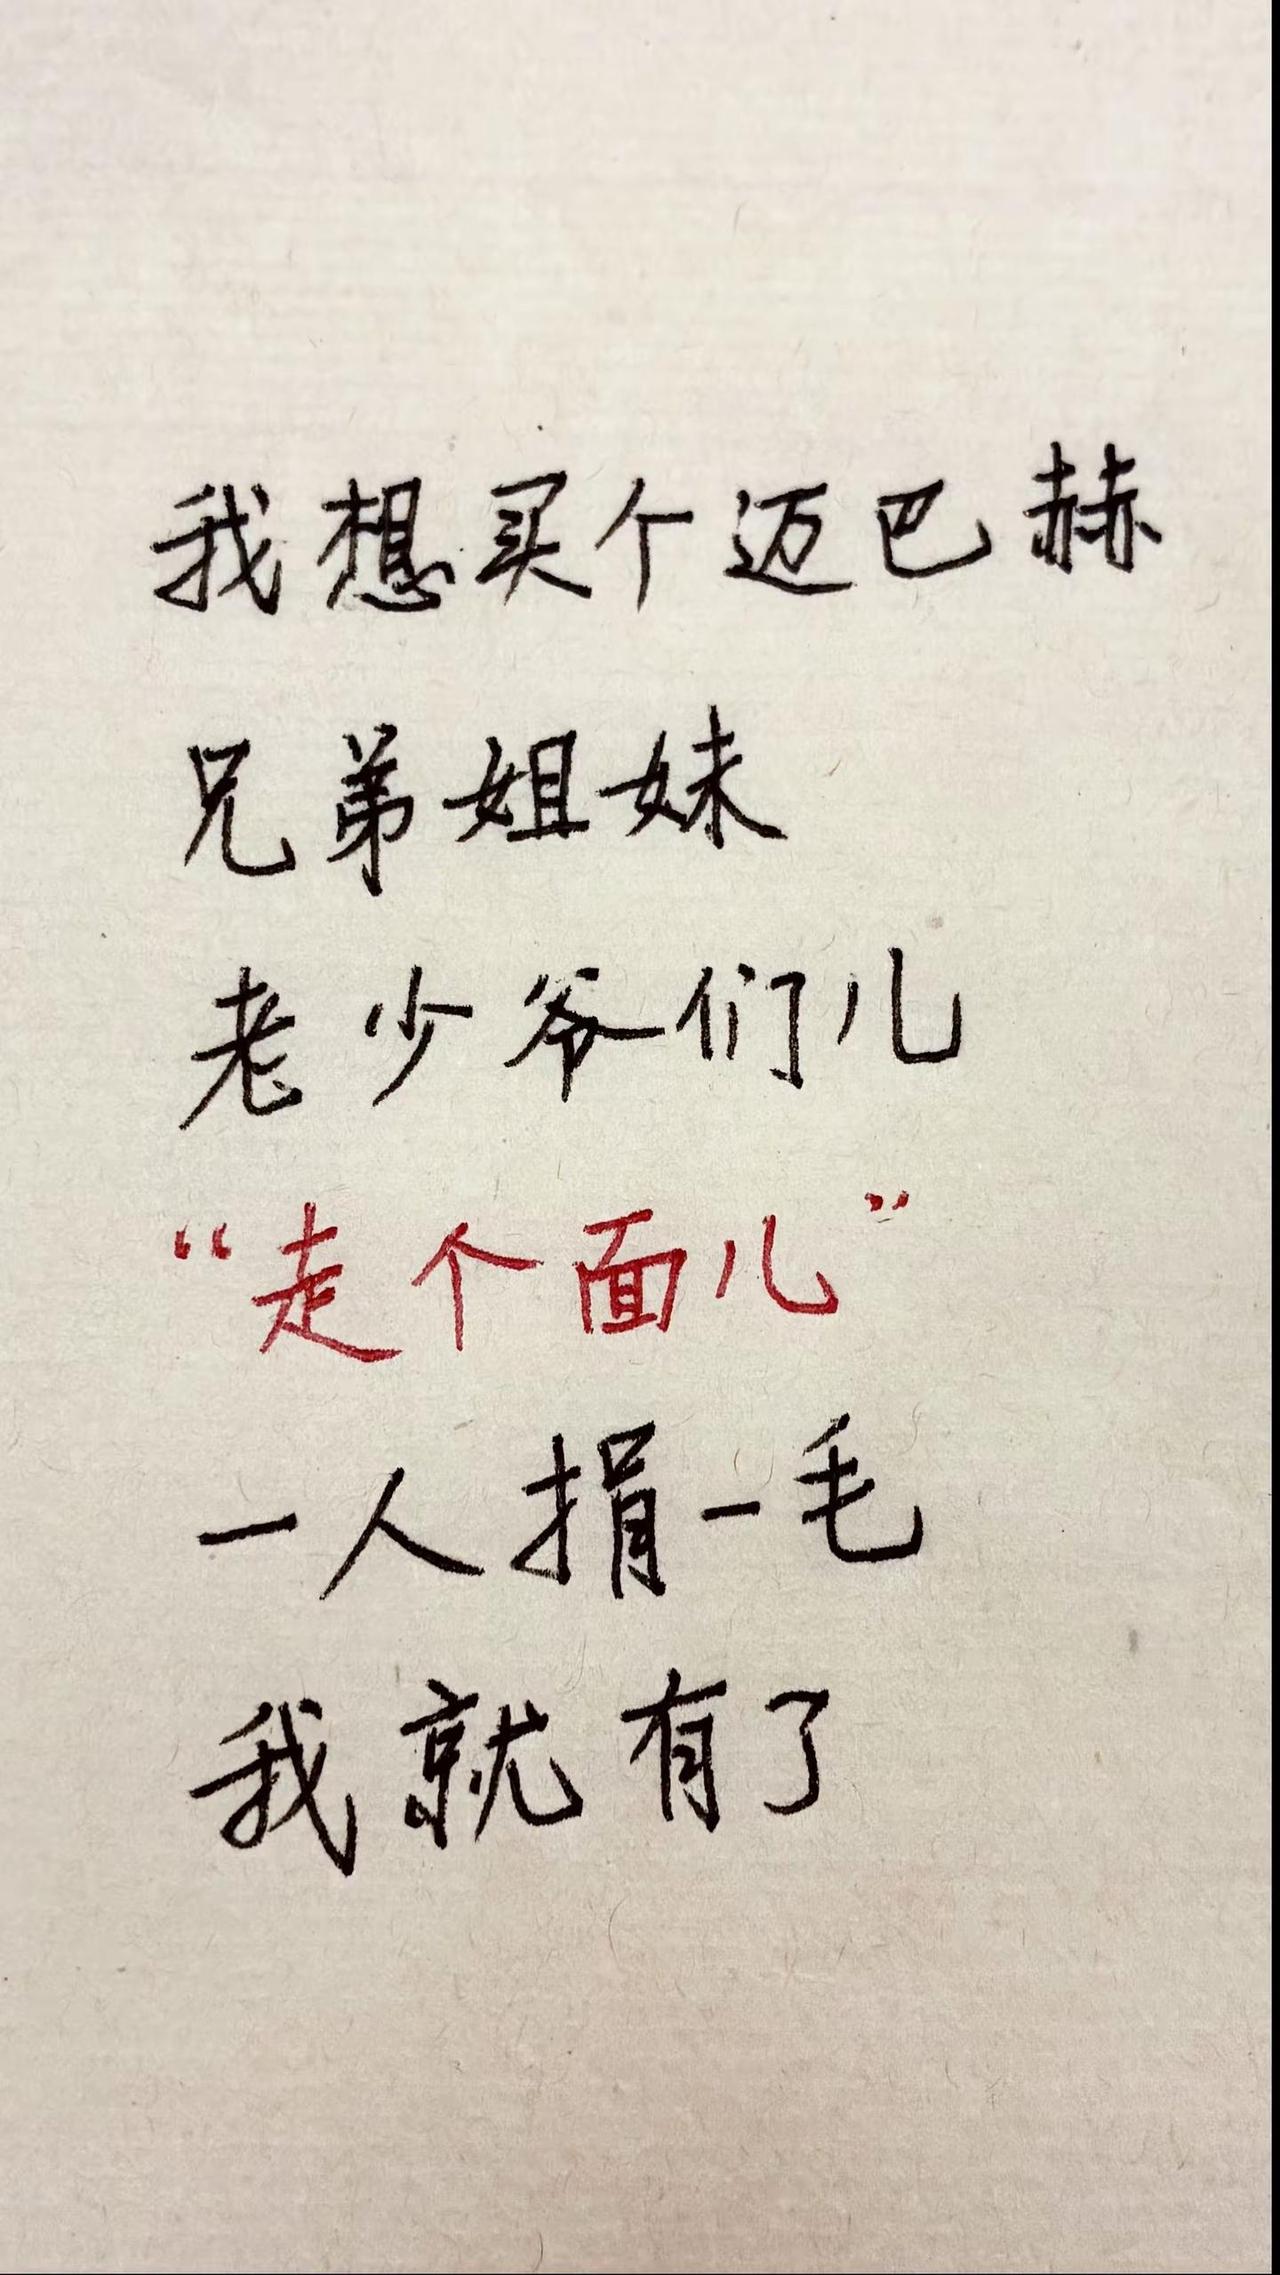 我想买个迈巴赫
兄弟姐妹
老少爷们儿
“走个面儿”
一人捐一毛
我就有了